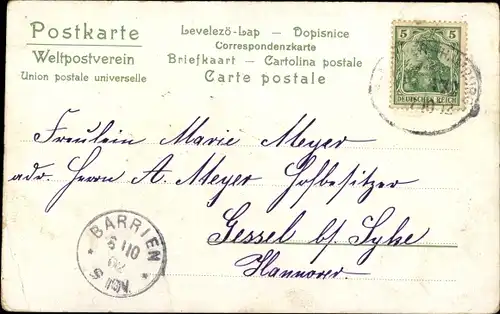 Postkarte
Weltpostverein
Union postale universelle
Levelezö-Lap – Dopisnice
Correspondenzkarte
Briefkaart – Cartolina postale
Carte postale
5 5
DEUTSCHES REICH
Fräulein Marie Meyer
adr. Herrn A. Meyer Hofbesitzer
Gessel b/ Syke
Hannover.
BARRIEN